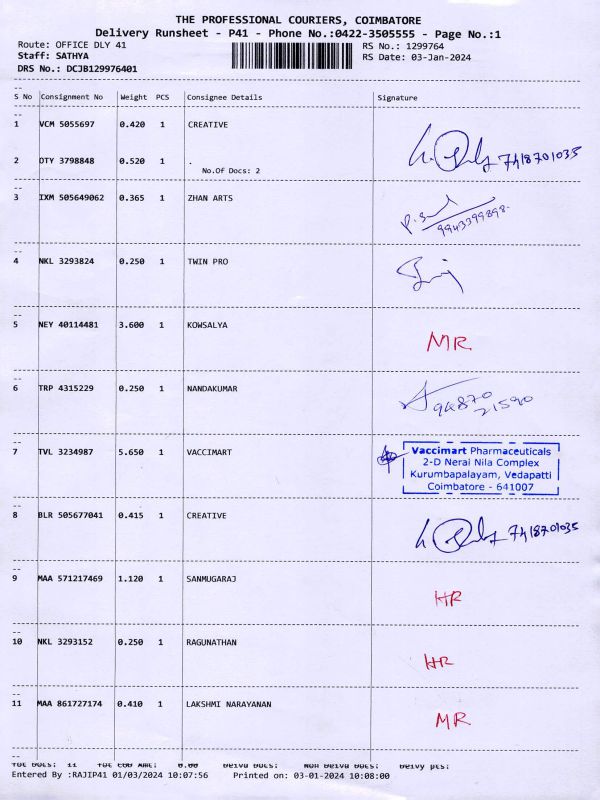 THE PROFESSIONAL COURIERS, COIMBATORE
Delivery Runsheet - P41 - Phone No.:0422-3505555 - Page No.:1
Route: OFFICE DLY 41 RS No.: 1299764
Staff: SATHYA RS Date: 03-Jan-2024
DRS No.: DCJB129976401
S No Consignment No Weight PCS Consignee Details Signature
1 VCM 5055697 0.420 1 CREATIVE
2 DTY 3798848 0.520 1 . 7418701035
No.Of Docs: 2
3 IXM 505649062 0.365 1 ZHAN ARTS
9943399898.
4 NKL 3293824 0.250 1 TWIN PRO
5 NEY 40114481 3.600 1 KOWSALYA MR
6 TRP 4315229 0.250 1 NANDAKUMAR 94870
21590
7 TVL 3234987 5.650 1 VACCIMART Vaccimart Pharmaceuticals
2-D Nerai Nila Complex
Kurumbapalayam, Vedapatti
Coimbatore - 641007
8 BLR 505677041 0.415 1 CREATIVE 7418701035
9 MAA 571217469 1.120 1 SANMUGARAJ HR
10 NKL 3293152 0.250 1 RAGUNATHAN HR
11 MAA 861727174 0.410 1 LAKSHMI NARAYANAN MR
Entered By :RAJIP41 01/03/2024 10:07:56 Printed on: 03-01-2024 10:08:00